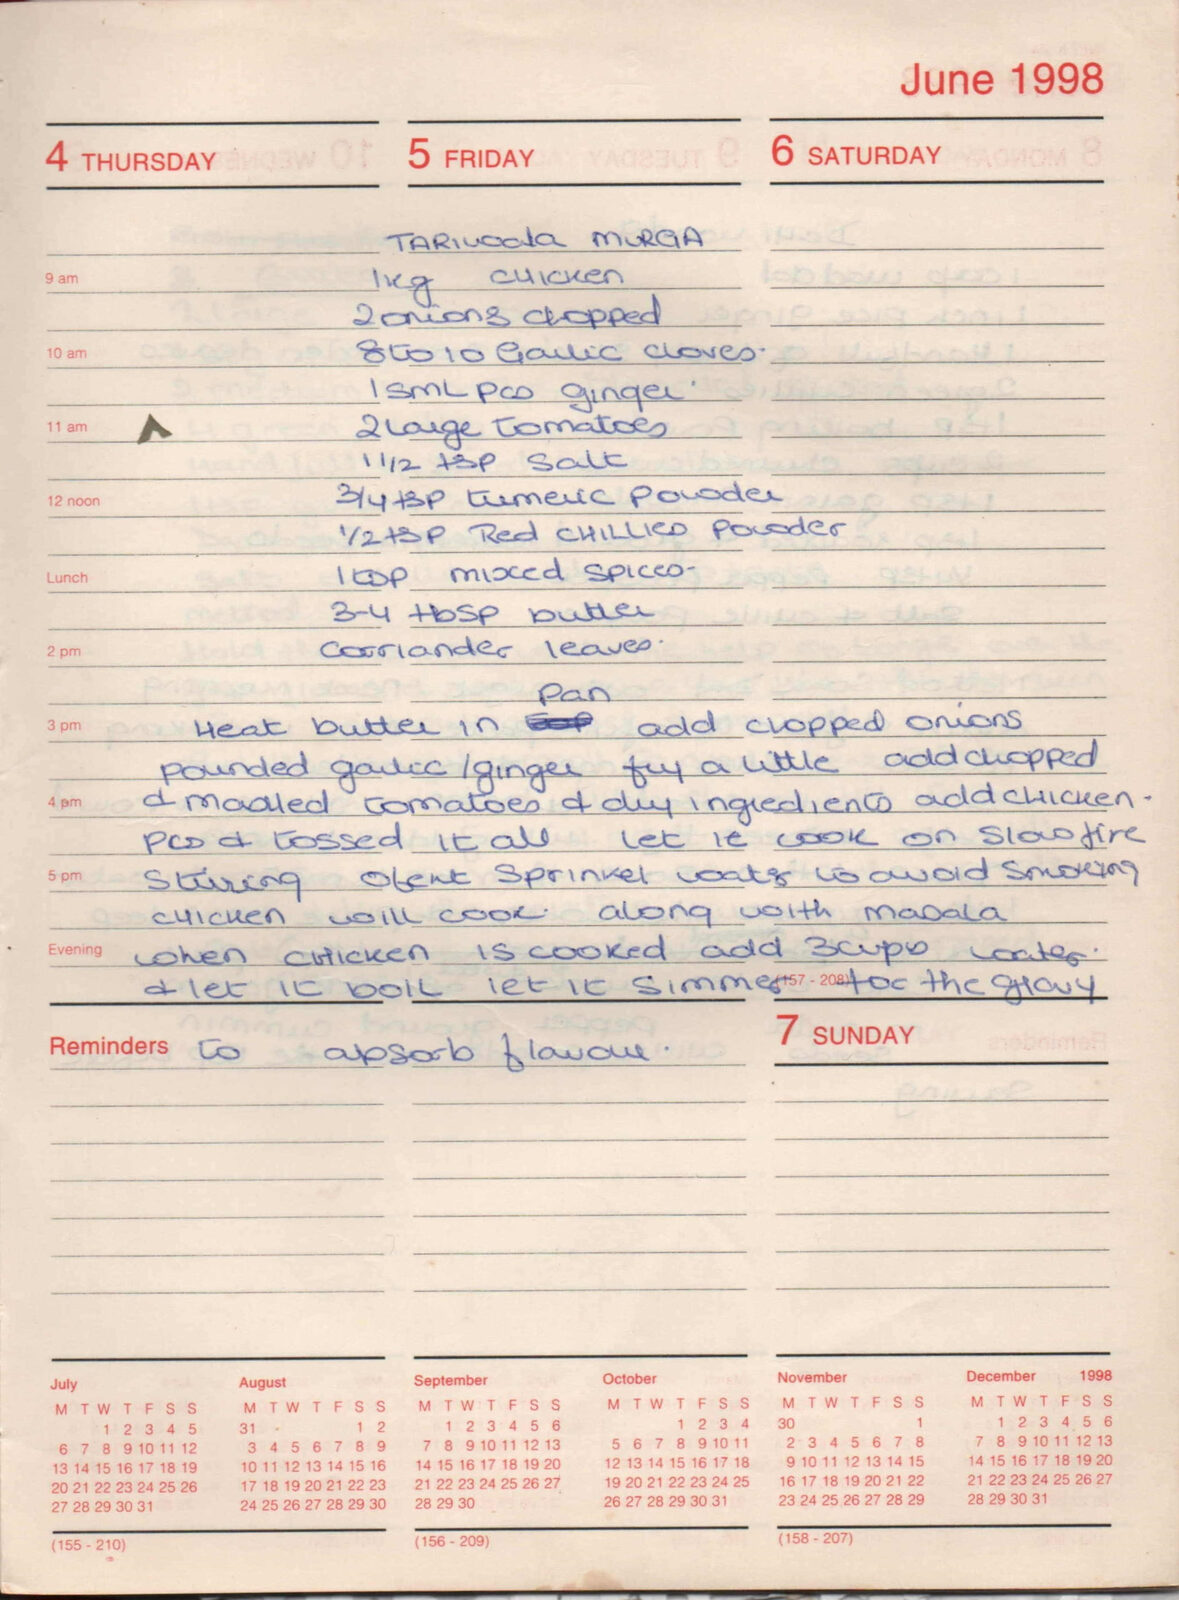 June 1998
4 THURSDAY 5 FRIDAY 6 SATURDAY
TARIWALA MURGA
9 am 1kg CHICKEN
2 onions chopped
10 am 8 to 10 Garlic cloves.
1 SML pcs ginger
11 am 2 Large tomatoes
1 1/2 tSP Salt
12 noon 3/4 tSP turmeric Powder
1/2 tSP Red CHILLIES Powder
Lunch 1 tSP mixed SPICES.
3-4 tbSP butter
2 pm Corriander leaves.
Pan
3 pm Heat butter in add chopped onions
pounded garlic/ginger fry a little add chopped
4 pm & mashed tomatoes & dry ingredients add CHICKEN.
pcs & tossed it all let it cook on Slow fire
5 pm Stiring ofent Sprinkel water to avoid Smoking
CHICKEN will cook along with masala
Evening when CHICKEN is cooked add 3cups water.
& let it boil let it simmer (157 - 208) for the gravy
Reminders to apsorb flavour. 7 SUNDAY
July August September October November December 1998
M T W T F S S M T W T F S S M T W T F S S M T W T F S S M T W T F S S M T W T F S S
1 2 3 4 5 31 1 2 1 2 3 4 5 6 1 2 3 4 30 1 1 2 3 4 5 6
6 7 8 9 10 11 12 3 4 5 6 7 8 9 7 8 9 10 11 12 13 5 6 7 8 9 10 11 2 3 4 5 6 7 8 7 8 9 10 11 12 13
13 14 15 16 17 18 19 10 11 12 13 14 15 16 14 15 16 17 18 19 20 12 13 14 15 16 17 18 9 10 11 12 13 14 15 14 15 16 17 18 19 20
20 21 22 23 24 25 26 17 18 19 20 21 22 23 21 22 23 24 25 26 27 19 20 21 22 23 24 25 16 17 18 19 20 21 22 21 22 23 24 25 26 27
27 28 29 30 31 24 25 26 27 28 29 30 28 29 30 26 27 28 29 30 31 23 24 25 26 27 28 29 28 29 30 31
(155 - 210) (156 - 209) (158 - 207)